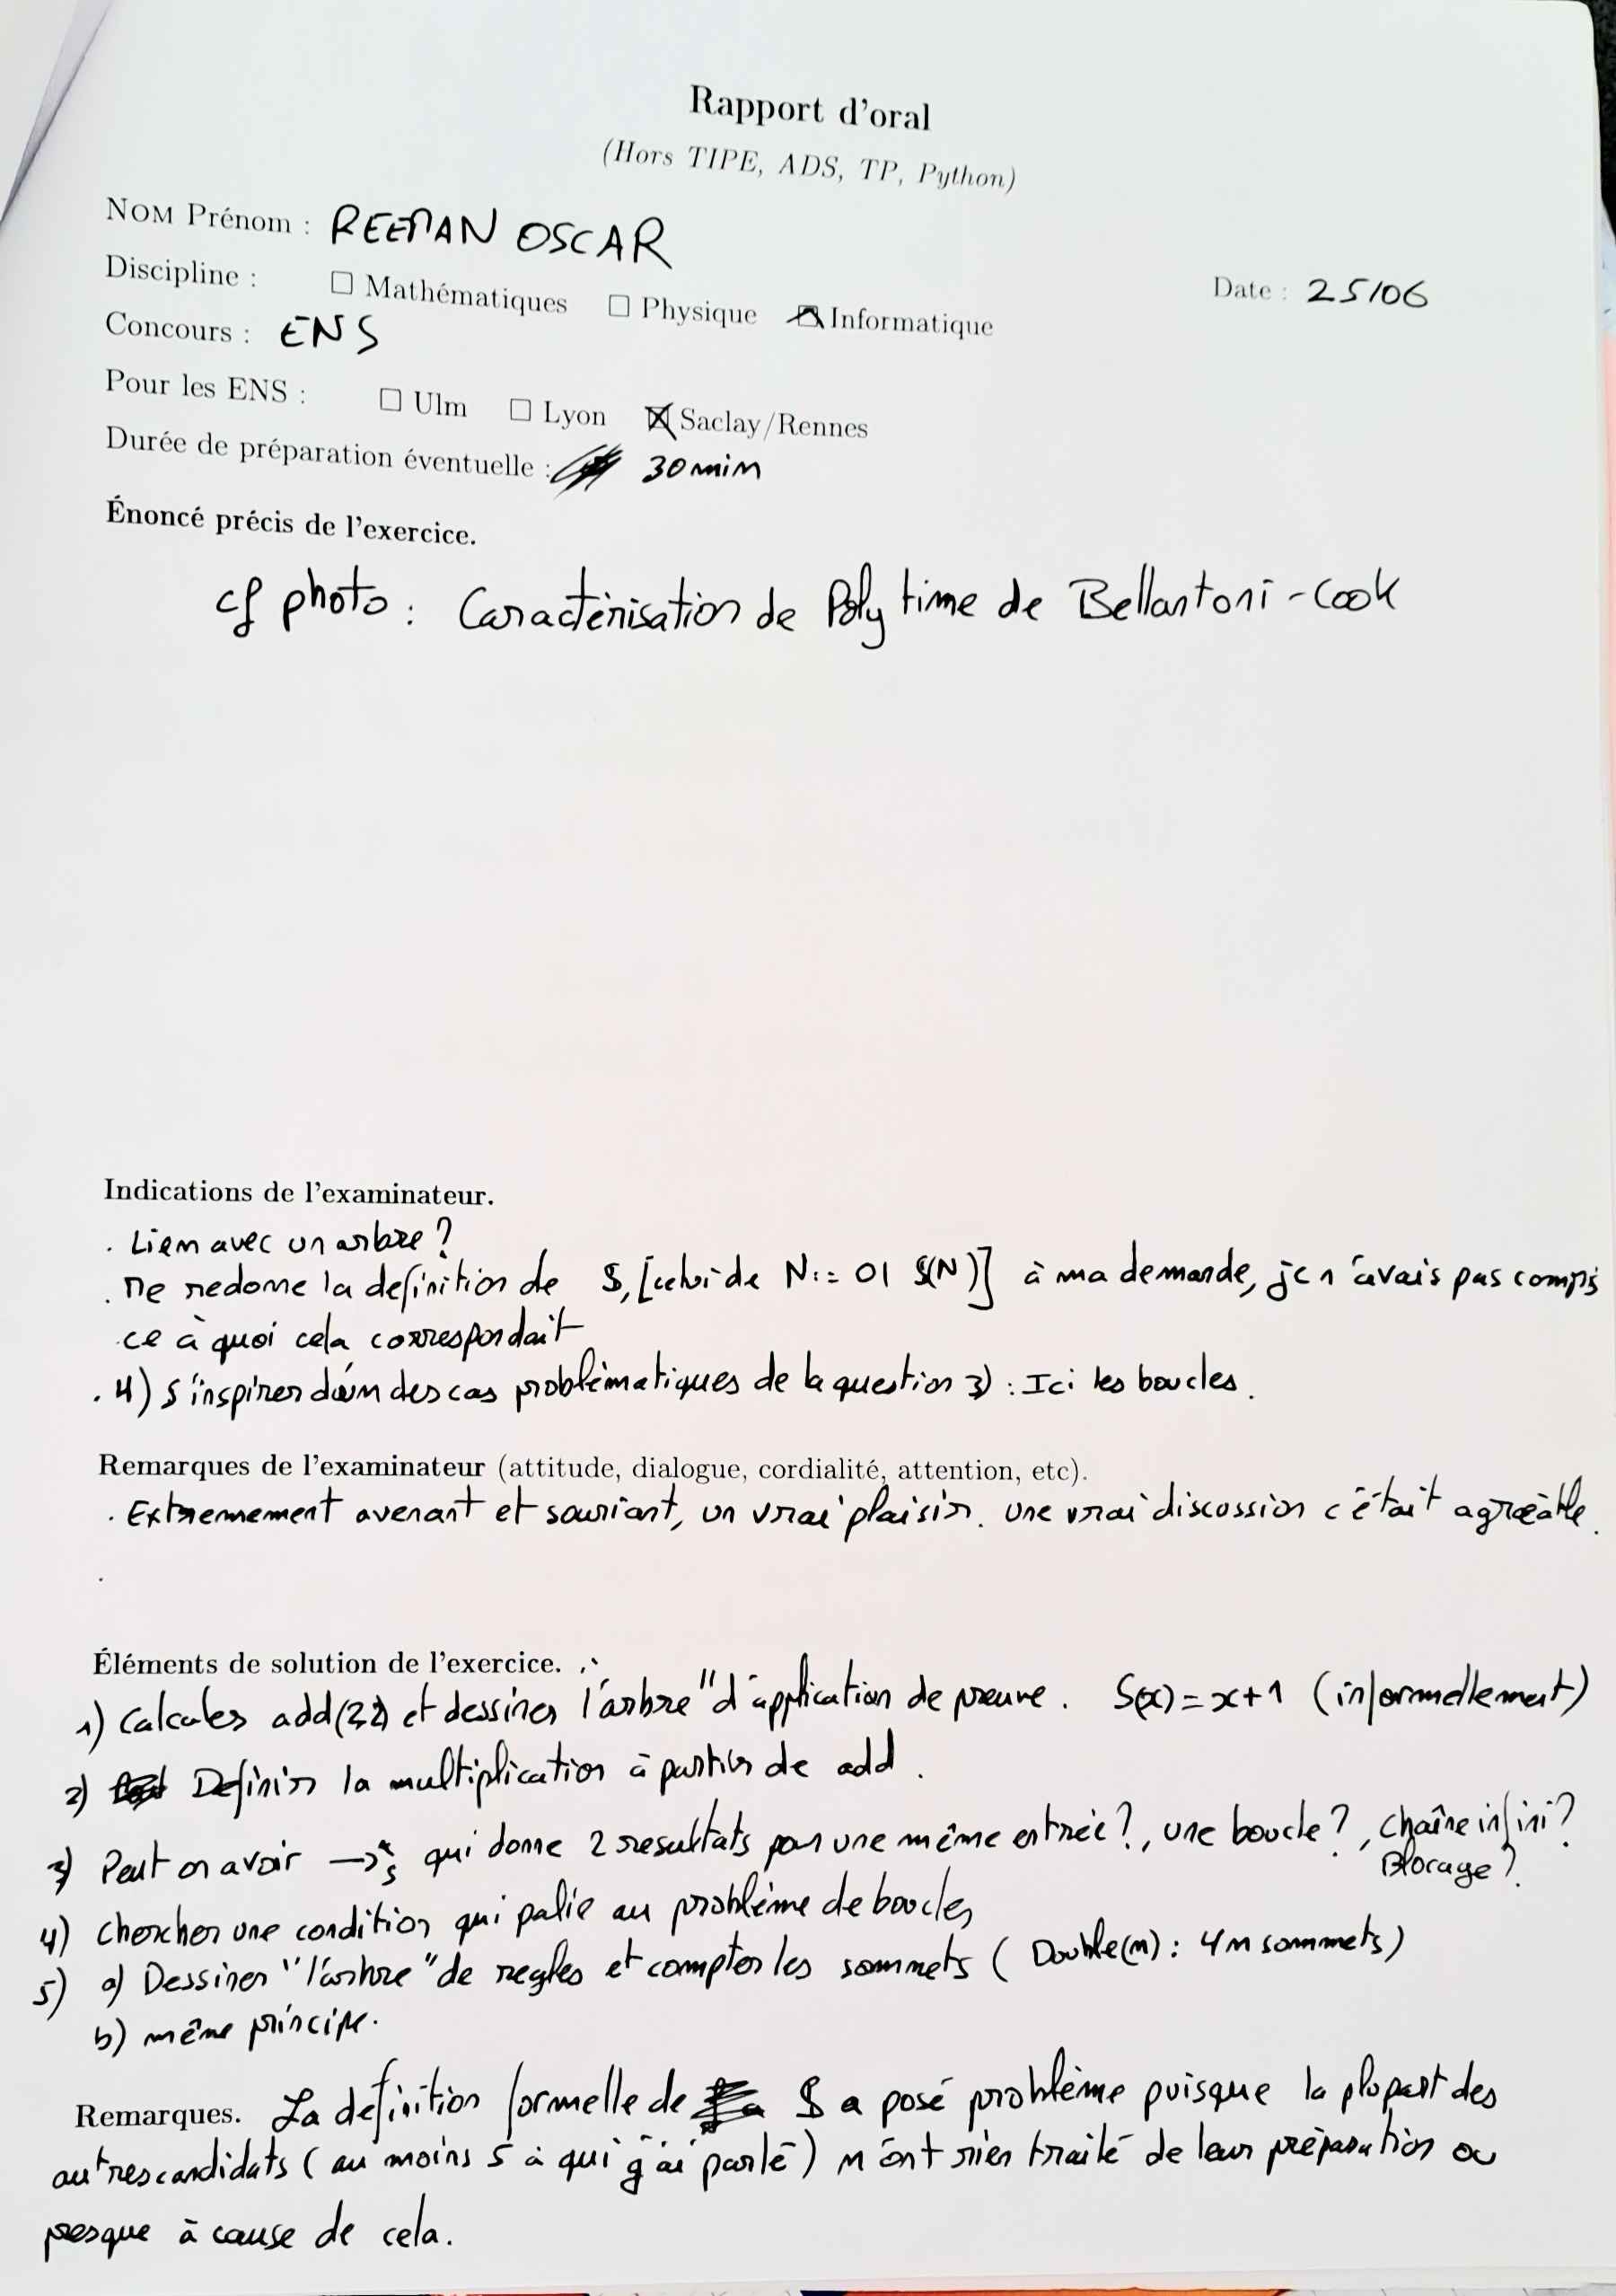 Rapport d'oral
(Hors TIPE, ADS, TP, Python)
NOM Prénom : REEMAN OSCAR
Discipline : ☐ Mathématiques ☐ Physique ☒ Informatique
Date : 25/06
Concours : ENS
Pour les ENS : ☐ Ulm ☐ Lyon ☒ Saclay/Rennes
Durée de préparation éventuelle : 30 min
Énoncé précis de l'exercice.
cf photo : Caractérisation de Poly time de Bellantoni-Cook
Indications de l'examinateur.
. Lien avec un arbre ?
. Me redonne la definition de S, [celui de N := 0 | S(N)] à ma demande, je n'avais pas compris
ce à quoi cela correspondait
. 4) s'inspirer d'un des cas problématiques de la question 3) : Ici les boucles.
Remarques de l'examinateur (attitude, dialogue, cordialité, attention, etc).
. Extremement avenant et souriant, un vrai plaisir. Une vrai discussion c'était agréable.
.
Éléments de solution de l'exercice.
1) Calculer add(2,2) et dessiner l'arbre "d'application de preuve. S(x) = x+1 (informellement)
2) Definir la multiplication à partir de add.
3) Peut on avoir →*s qui donne 2 resultats pour une même entrée ?, une boucle ?, Chaîne infini ?
Blocage ?
4) Chercher une condition qui palie au problème de boucles
5) a) Dessiner "l'arbre" de regles et compter les sommets ( Double(n) : 4n sommets)
b) même principe.
Remarques. La definition formelle de S a posé problème puisque la plupart des
autres candidats ( au moins 5 à qui j'ai parlé ) n'ont rien traité de leur préparation ou
presque à cause de cela.